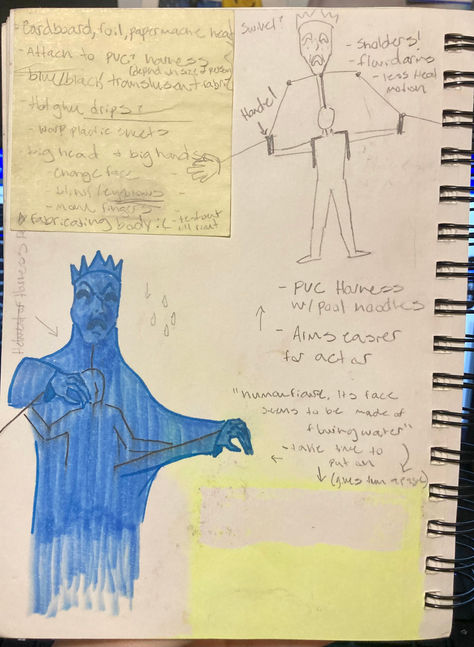 - Cardboard, foil, papermache head
- Attach to PVC? harness
(depend on size of person)
blue/black translusent fabric
drips?
- warp plastic sheets
- big head + big hands
- change face
- blink/eyebrows
- move fingers
fabricating body :(
Swivel?
- Sholders!
- fluid arms
- less head
motion
Handle!
- PVC Harness
w/ pool noodles
- Arms easier
for actor
"human figure, its face
seems to be made of
flowing water"
- take time to
put on